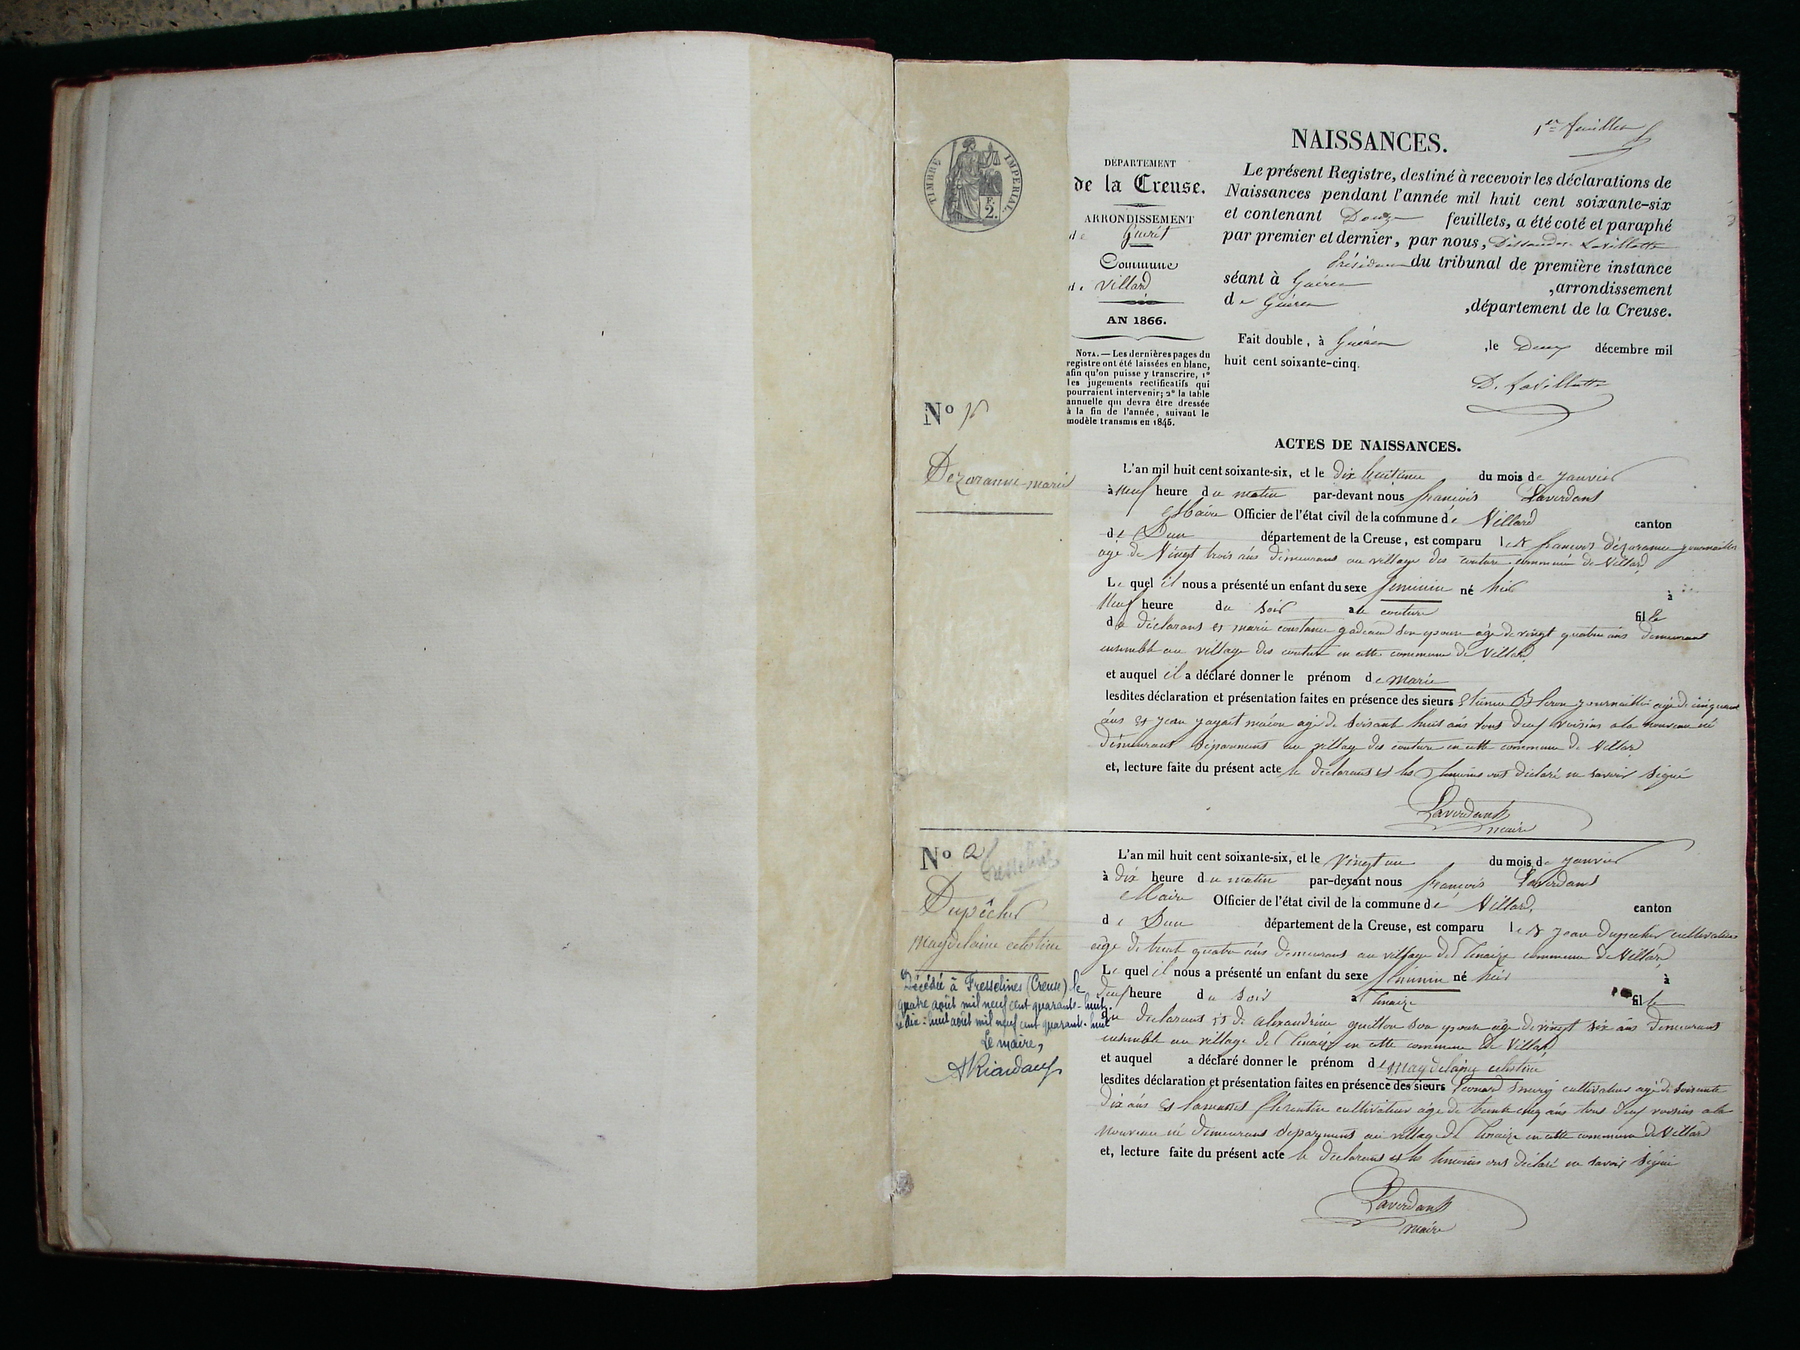 1er feuillet
NAISSANCES.
TIMBRE IMPERIAL
F.
2.
DÉPARTEMENT
de la Creuse.
ARRONDISSEMENT
de Guérêt
Commune
de Villard
AN 1866.
NOTA. — Les dernières pages du
registre ont été laissées en blanc,
afin qu'on puisse y transcrire, 1°
les jugements rectificatifs qui
pourraient intervenir; 2° la table
annuelle qui devra être dressée
à la fin de l'année, suivant le
modèle transmis en 1845.
Le présent Registre, destiné à recevoir les déclarations de
Naissances pendant l'année mil huit cent soixante-six
et contenant Douze feuillets, a été coté et paraphé
par premier et dernier, par nous, Lavillatte
Président du tribunal de première instance
séant à Guéret ,arrondissement
de Guéret ,département de la Creuse.
Fait double, à Guéret ,le Deux décembre mil
huit cent soixante-cinq.
D. Lavillatte
ACTES DE NAISSANCES.
No 1
Dezaranne marie
L'an mil huit cent soixante-six, et le dix huitieme du mois de janvier
à neuf heure du matin par-devant nous françois Laverdant
Maire Officier de l'état civil de la commune de Villard canton
de Dun département de la Creuse, est comparu le S françois dézaranne journaillier
age de Vingt trois ans demeurant au village des couture commune de Villard
Le quel il nous a présenté un enfant du sexe feminin né hier à
Neuf heure du soir au couture fille
du déclarant et marie constance son epouse age de vingt quatre ans demeurant
ensemble au village des couture en cette commune de Villard
et auquel il a déclaré donner le prénom de marie
lesdites déclaration et présentation faites en présence des sieurs Etienne journaillier agé de cinquante
ans et jean maçon agé de soisant huit ans tous deux voisins a la nouveau né
demeurant séparément au village des couture en cette commune de Villard
et, lecture faite du présent acte le declarant et les temoins ont déclaré ne savoir signé
Laverdant
maire
No 2
Fresselines
Dupêcher
magdelaine celestine
Décédée à Fresselines (Creuse) le
quatre août mil neuf cent quarante-huit.
le dix-huit août mil neuf cent quarante-huit
Le maire,
L'an mil huit cent soixante-six, et le vingt un du mois de janvier
à dix heure du matin par-devant nous françois Laverdant
Maire Officier de l'état civil de la commune de Villard, canton
de Dun département de la Creuse, est comparu le S jean dupecher cultivateur
age de trente quatre ans demeurant au village de l'enaize commune de Villard
Le quel il nous a présenté un enfant du sexe feminin né hier à
deuf heure du soir a l'enaize fille
du declarant et de alexandrine guillon son epouse age de vingt six ans demeurant
ensemble au village de l'enaize en cette commune de Villard
et auquel a déclaré donner le prénom de magdelaine celestine
lesdites déclaration et présentation faites en présence des sieurs Leonard cultivateur agé de soisante
dix ans et florentin cultivateur agé de trente cinq ans tous deux voisins a la
nouveau né demeurant séparément au village de l'enaize en cette commune de Villard
et, lecture faite du présent acte le declarant et les temoins ont déclaré ne savoir signé
Laverdant
maire